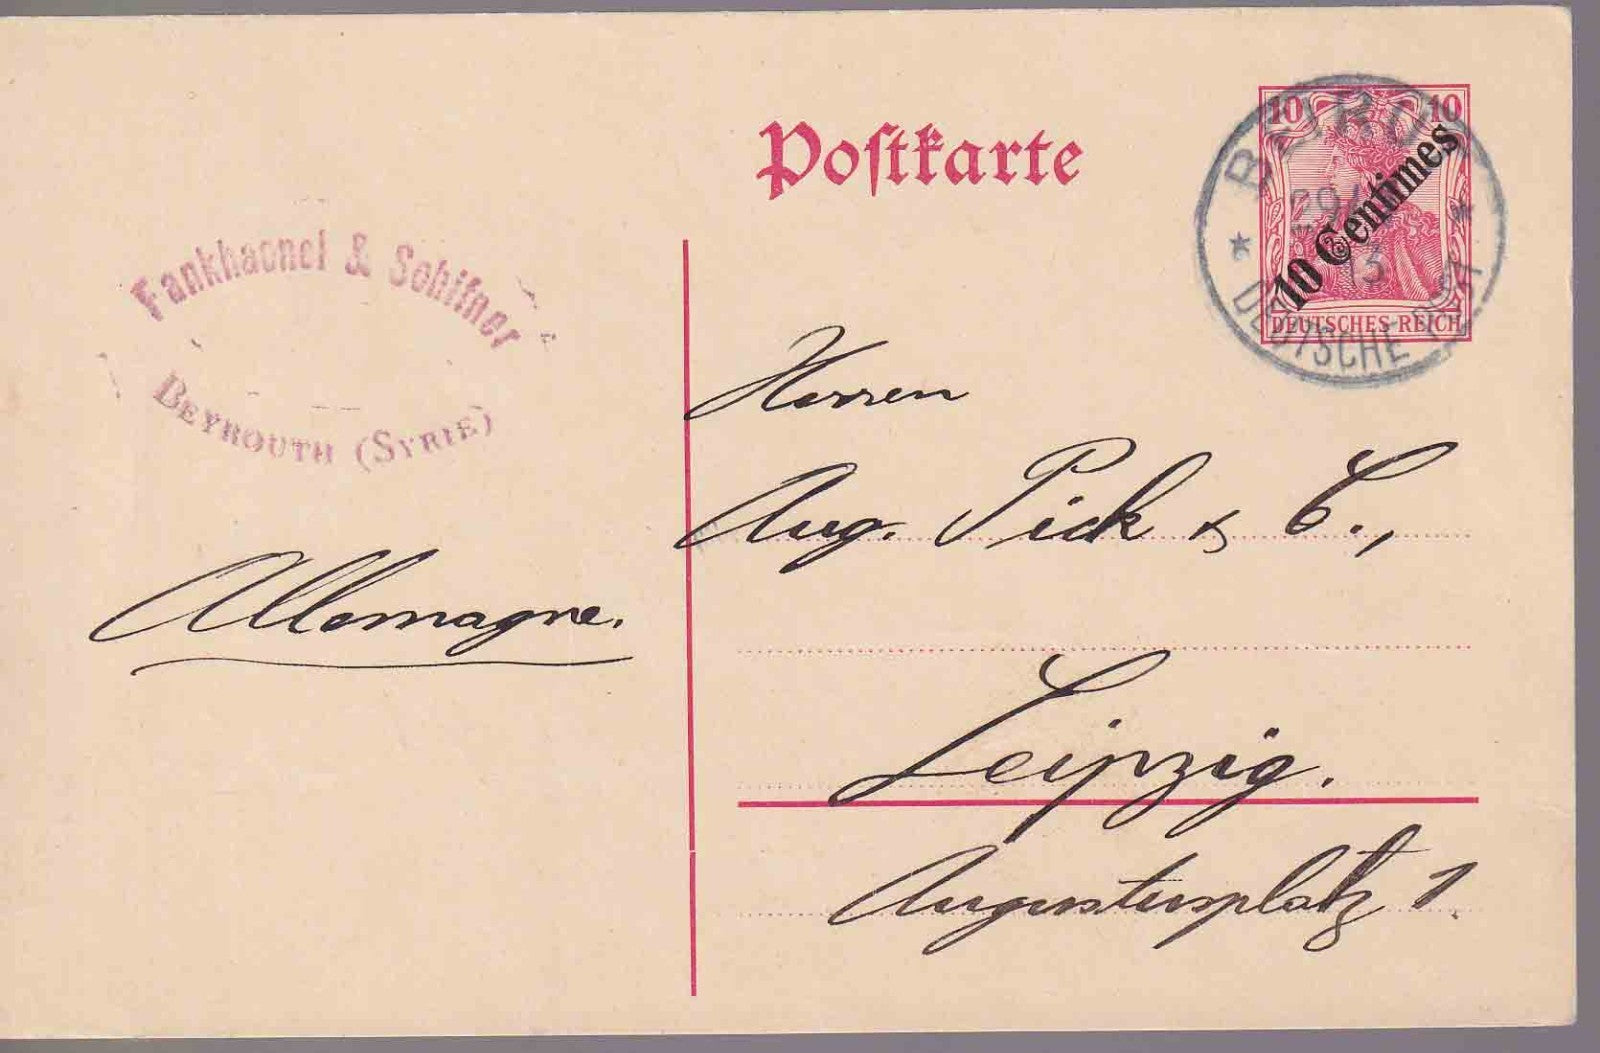 Postkarte
10 10
10 Centimes
DEUTSCHES REICH
BEIRUT
29/
13
DEUTSCHE POST
Fankhaenel & Schifner
BEYROUTH (SYRIE)
Herren
Aug. Pick & C.,
Allemagne.
Leipzig.
Augustusplatz 1.